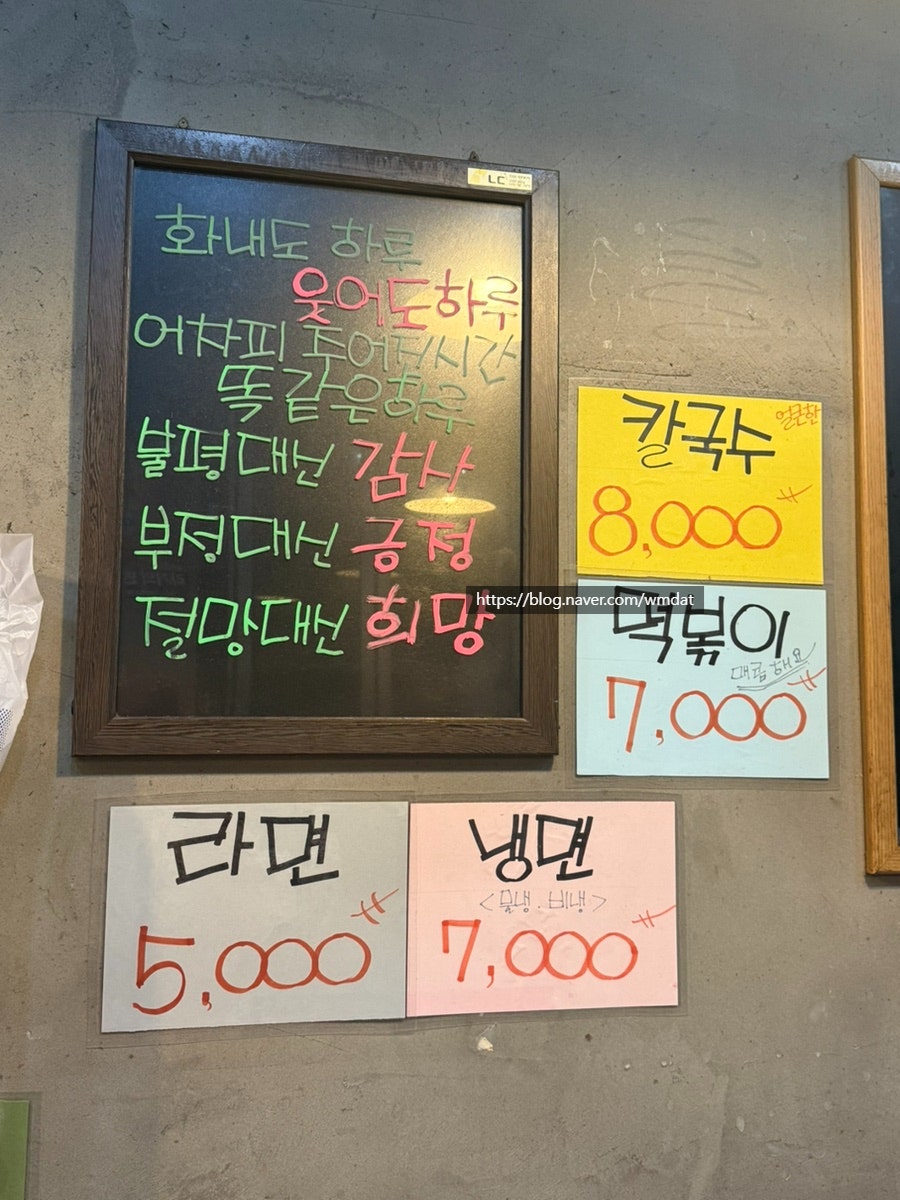 화내도 하루
웃어도하루
어차피 주어진시간
똑같은하루
불평대신 감사
부정대신 긍정
절망대신 희망
LC
칼국수 얼큰한
8,000
https://blog.naver.com/wmdat
떡볶이
매콤해요
7,000
라면
5,000
냉면
<물냉.비냉>
7,000